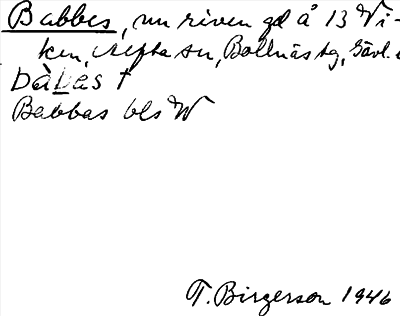 Babbes, nu riven gd å 13 Vi-
ken, Alfta sn, Bollnäs tg, Gävl. l
bàbas †
Babbas bls W
T. Birgerson 1946